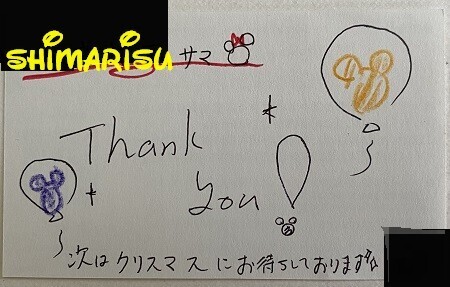 SHIMARISU サマ
Thank
you!
次はクリスマスにお待ちしております